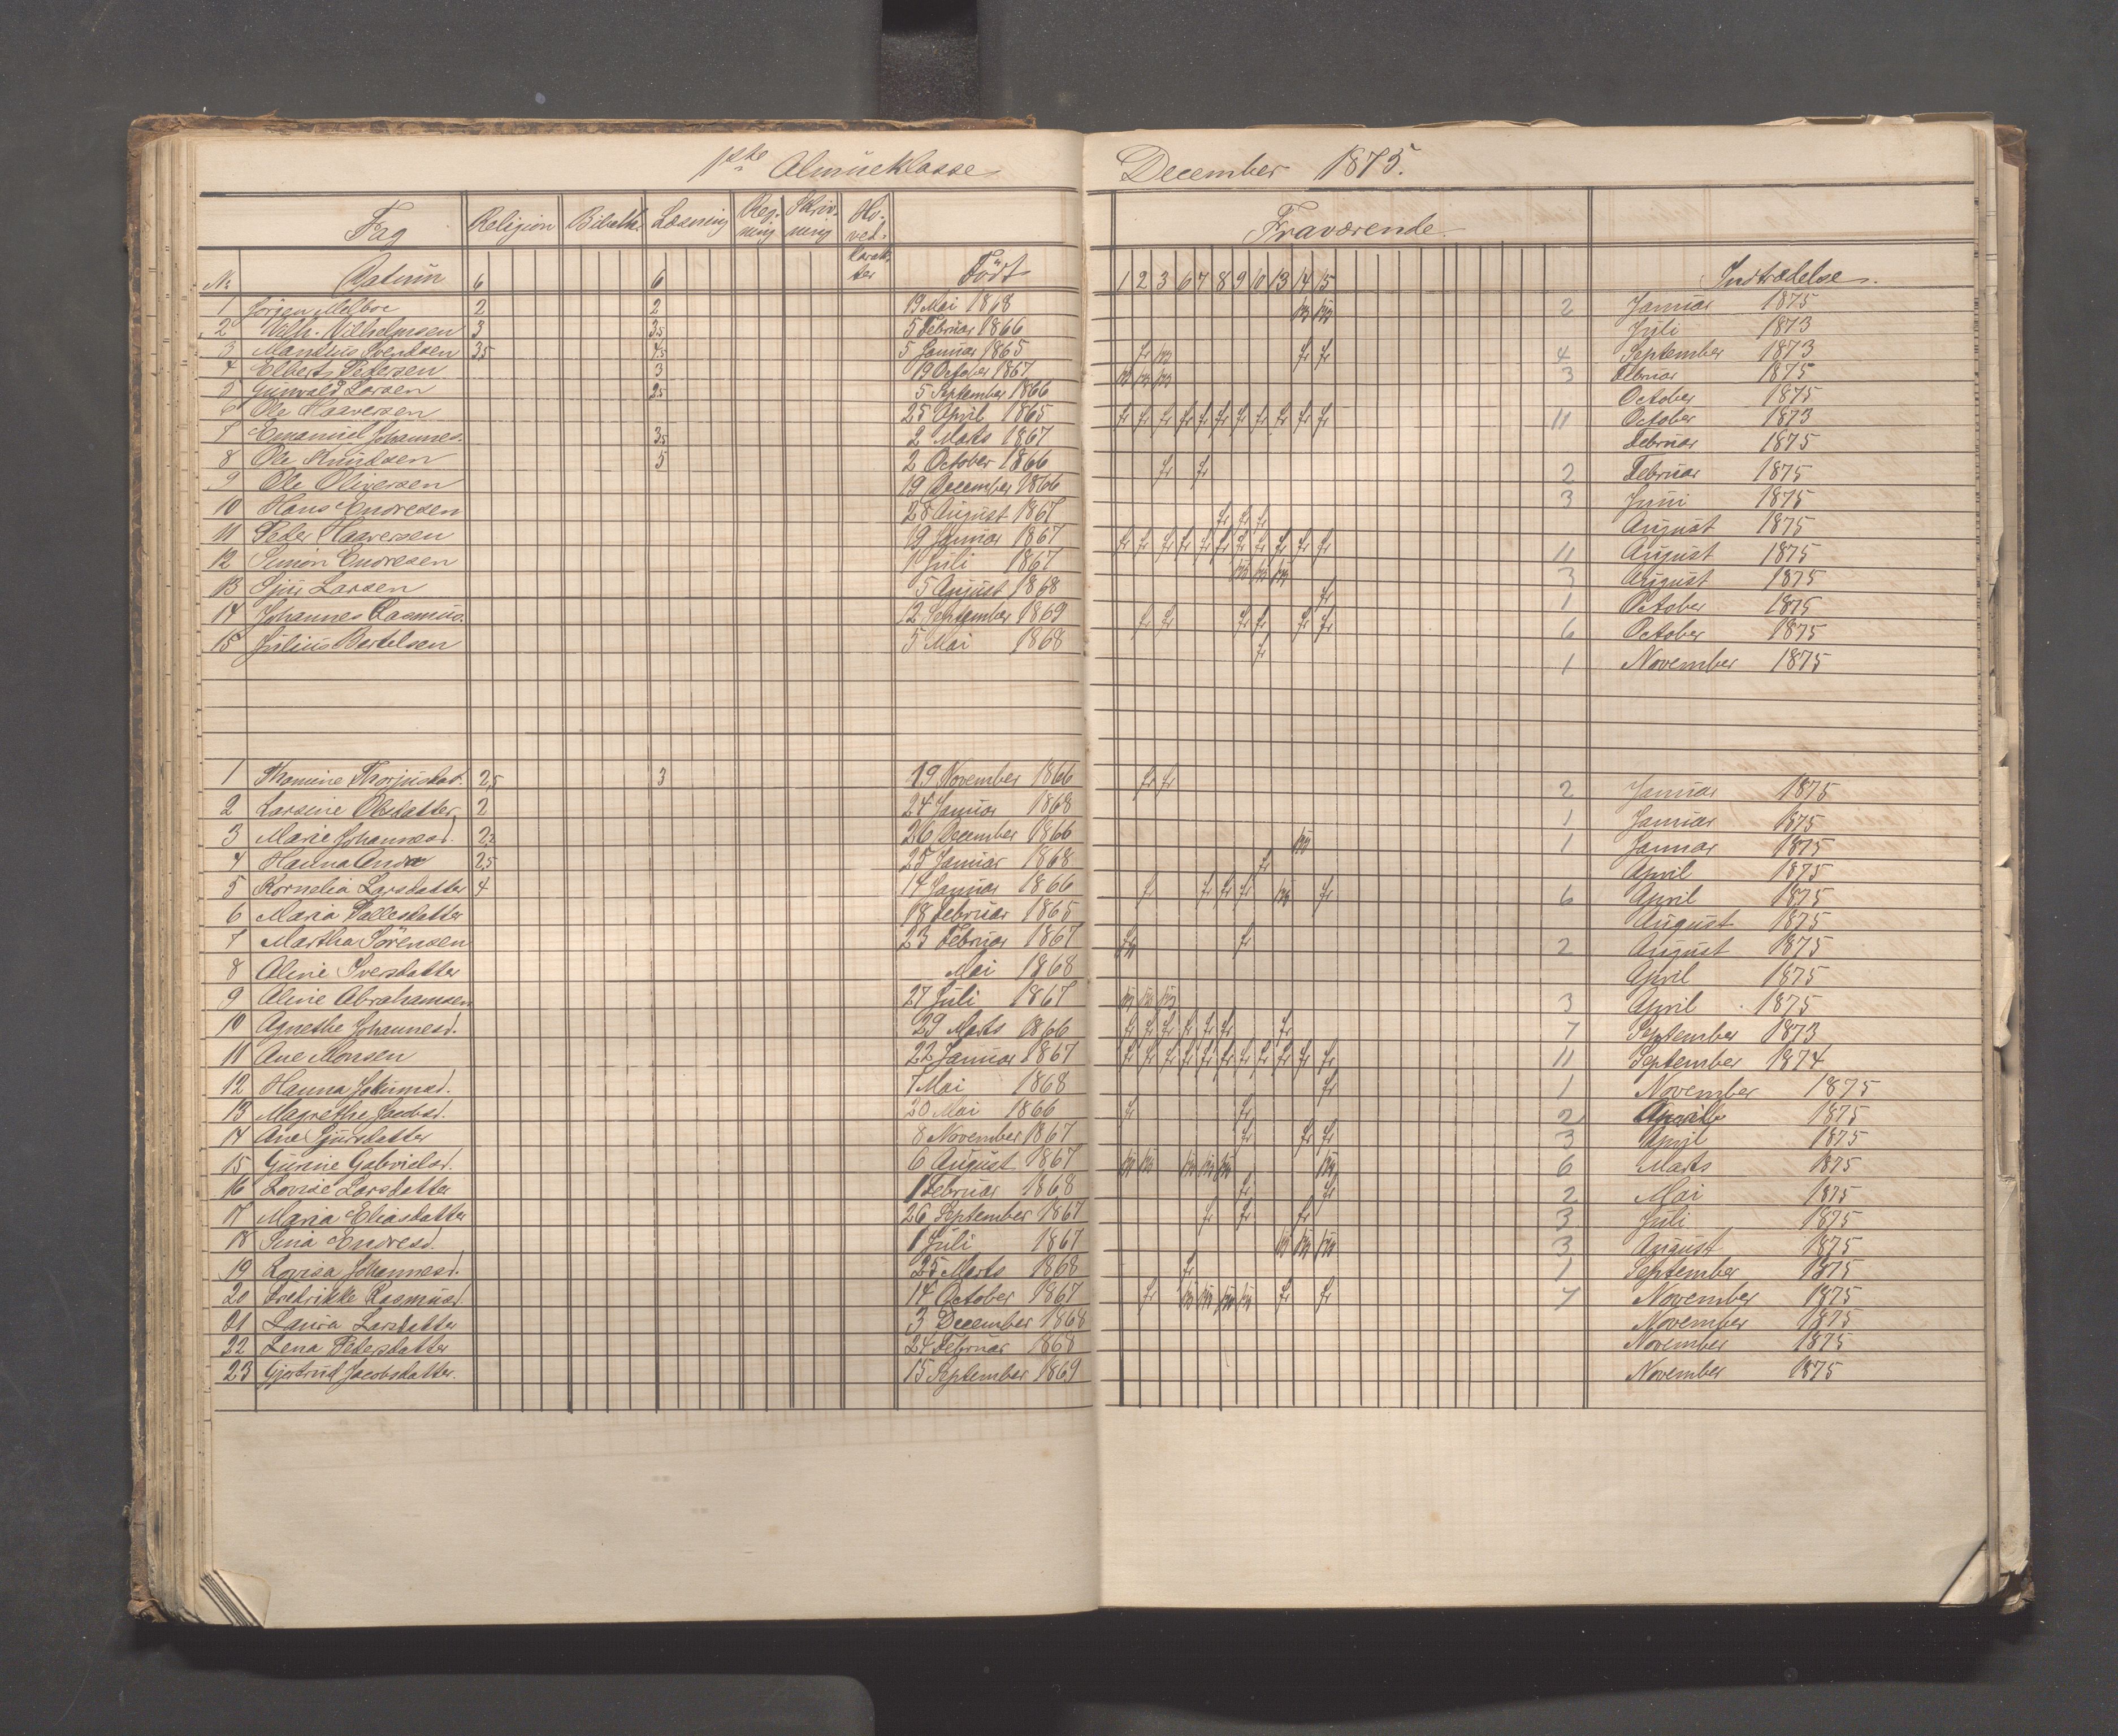 1ste Almueklasse December 1875.
Fag Religion Bibelh. Læsning Reg-ning Skriv-ning Ho-ved-karak-ter Fraværende
No Datum 6 6 Födt 1 2 3 6 7 8 9 10 13 14 15 Indtrædelse.
1 Jörgen Melboe 2 2 19 Mai 1868 2 Januar 1875
2 Vilh. Vilhelmsen 3 3,5 5 Februar 1866 Juli 1873
3 Mandius Svendsen 3,5 4,5 5 Januar 1865 fr fr fr 4 September 1873
4 Elbert Pedersen 3 19 October 1867 3 Februar 1875
5 Gunvald Larsen 2,5 5 September 1866 October 1875
6 Ole Haaversen 25 April 1865 fr fr fr fr fr fr fr fr fr fr fr 11 October 1873
7 Emanuel Johannes. 3,5 2 Marts 1867 Februar 1875
8 Ole Knudsen 5 2 October 1866 fr fr 2 Februar 1875
9 Ole Oliversen 19 December 1866 3 Juni 1875
10 Hans Endresen 28 August 1867 fr fr fr August 1875
11 Peder Haaversen 19 Januar 1867 fr fr fr fr fr fr fr fr fr fr fr 11 August 1875
12 Simon Endresen 1 Juli 1867 3 August 1875
13 Sjur Larsen 5 August 1868 fr 1 October 1875
14 Johannes Rasmus. 12 September 1869 fr fr fr fr fr fr 6 October 1875
15 Julius Bertelsen 5 Mai 1868 fr 1 November 1875
1 Thomine Thorjusdat. 2,5 3 19 November 1866 fr fr 2 Januar 1875
2 Larsine Olsdatter 2 24 Januar 1868 1 Januar 1875
3 Marie Johannesd. 2,2 26 December 1866 1 Januar 1875
4 Hanna Andr 2,5 25 Januar 1868 fr April 1875
5 Kornelia Larsdatter 4 14 Januar 1866 fr fr fr fr fr 6 April 1875
6 Maria Pallesdatter 18 Februar 1865 August 1875
7 Martha Sörensen 23 Februar 1867 fr 2 August 1875
8 Aline Iversdatter Mai 1868 April 1875
9 Aline Abrahamsen 27 Juli 1867 3 April 1875
10 Agnethe Johannesd. 29 Marts 1866 fr fr fr fr fr fr fr 7 September 1873
11 Ane Monsen 22 Januar 1867 fr fr fr fr fr fr fr fr fr fr fr 11 September 1874
12 Hanna 7 Mai 1868 fr 1 November 1875
13 Magrethe Jacobsd. 20 Mai 1866 fr fr 2 April 1875
14 Ane Sjursdatter 8 November 1867 fr fr fr 3 April 1875
15 Gurine Gabrielsd. 6 August 1867 6 Marts 1875
16 Lovise Larsdatter 1 Februar 1868 fr fr 2 Mai 1875
17 Maria Eliasdatter 26 September 1867 fr fr fr 3 Juli 1875
18 Sina Endresd. 1 Juli 1867 3 August 1875
19 Lovisa Johannesd. 25 Marts 1868 fr 1 September 1875
20 Fredrikke Rasmusd. 14 October 1867 fr fr fr 7 November 1875
21 Laura Larsdatter 3 December 1868 November 1875
22 Lena Pedersdatter 24 Februar 1868 November 1875
23 Gjertrud Jacobsdatter. 15 September 1869 November 1875